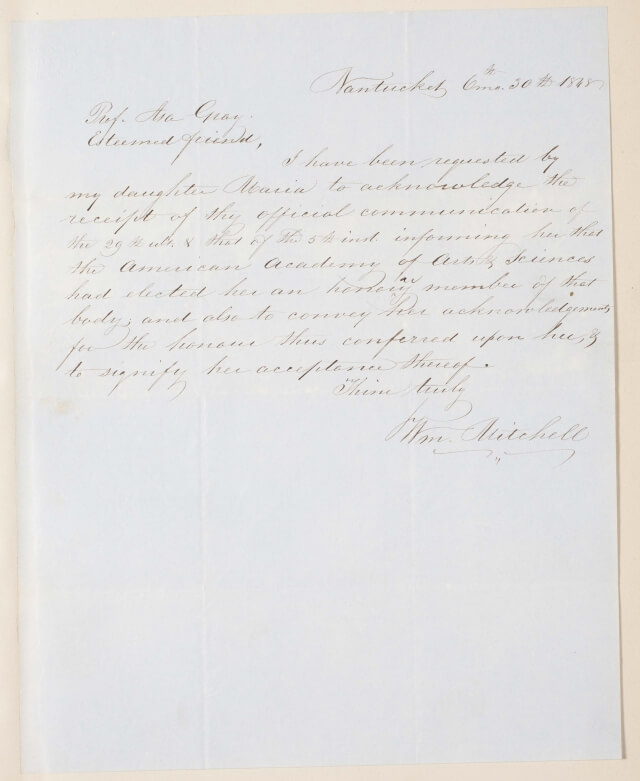 Nantucket 6th mo. 30th 1848
Prof. Asa Gray.
Esteemed friend,
I have been requested by
my daughter Maria to acknowledge the
receipt of thy official communication of
the 29th ult. & that of the 5th inst. informing her that
the American Academy of Arts & Sciences
had elected her an honorary member of that
body; and also to convey her acknowledgements
for the honour thus conferred upon her, &
to signify her acceptance thereof.
Thine truly
Wm. Mitchell